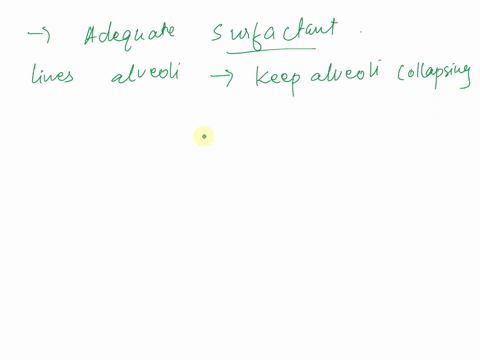 → Adequate Surfactant.
lines alveoli → Keep alveoli Collapsing